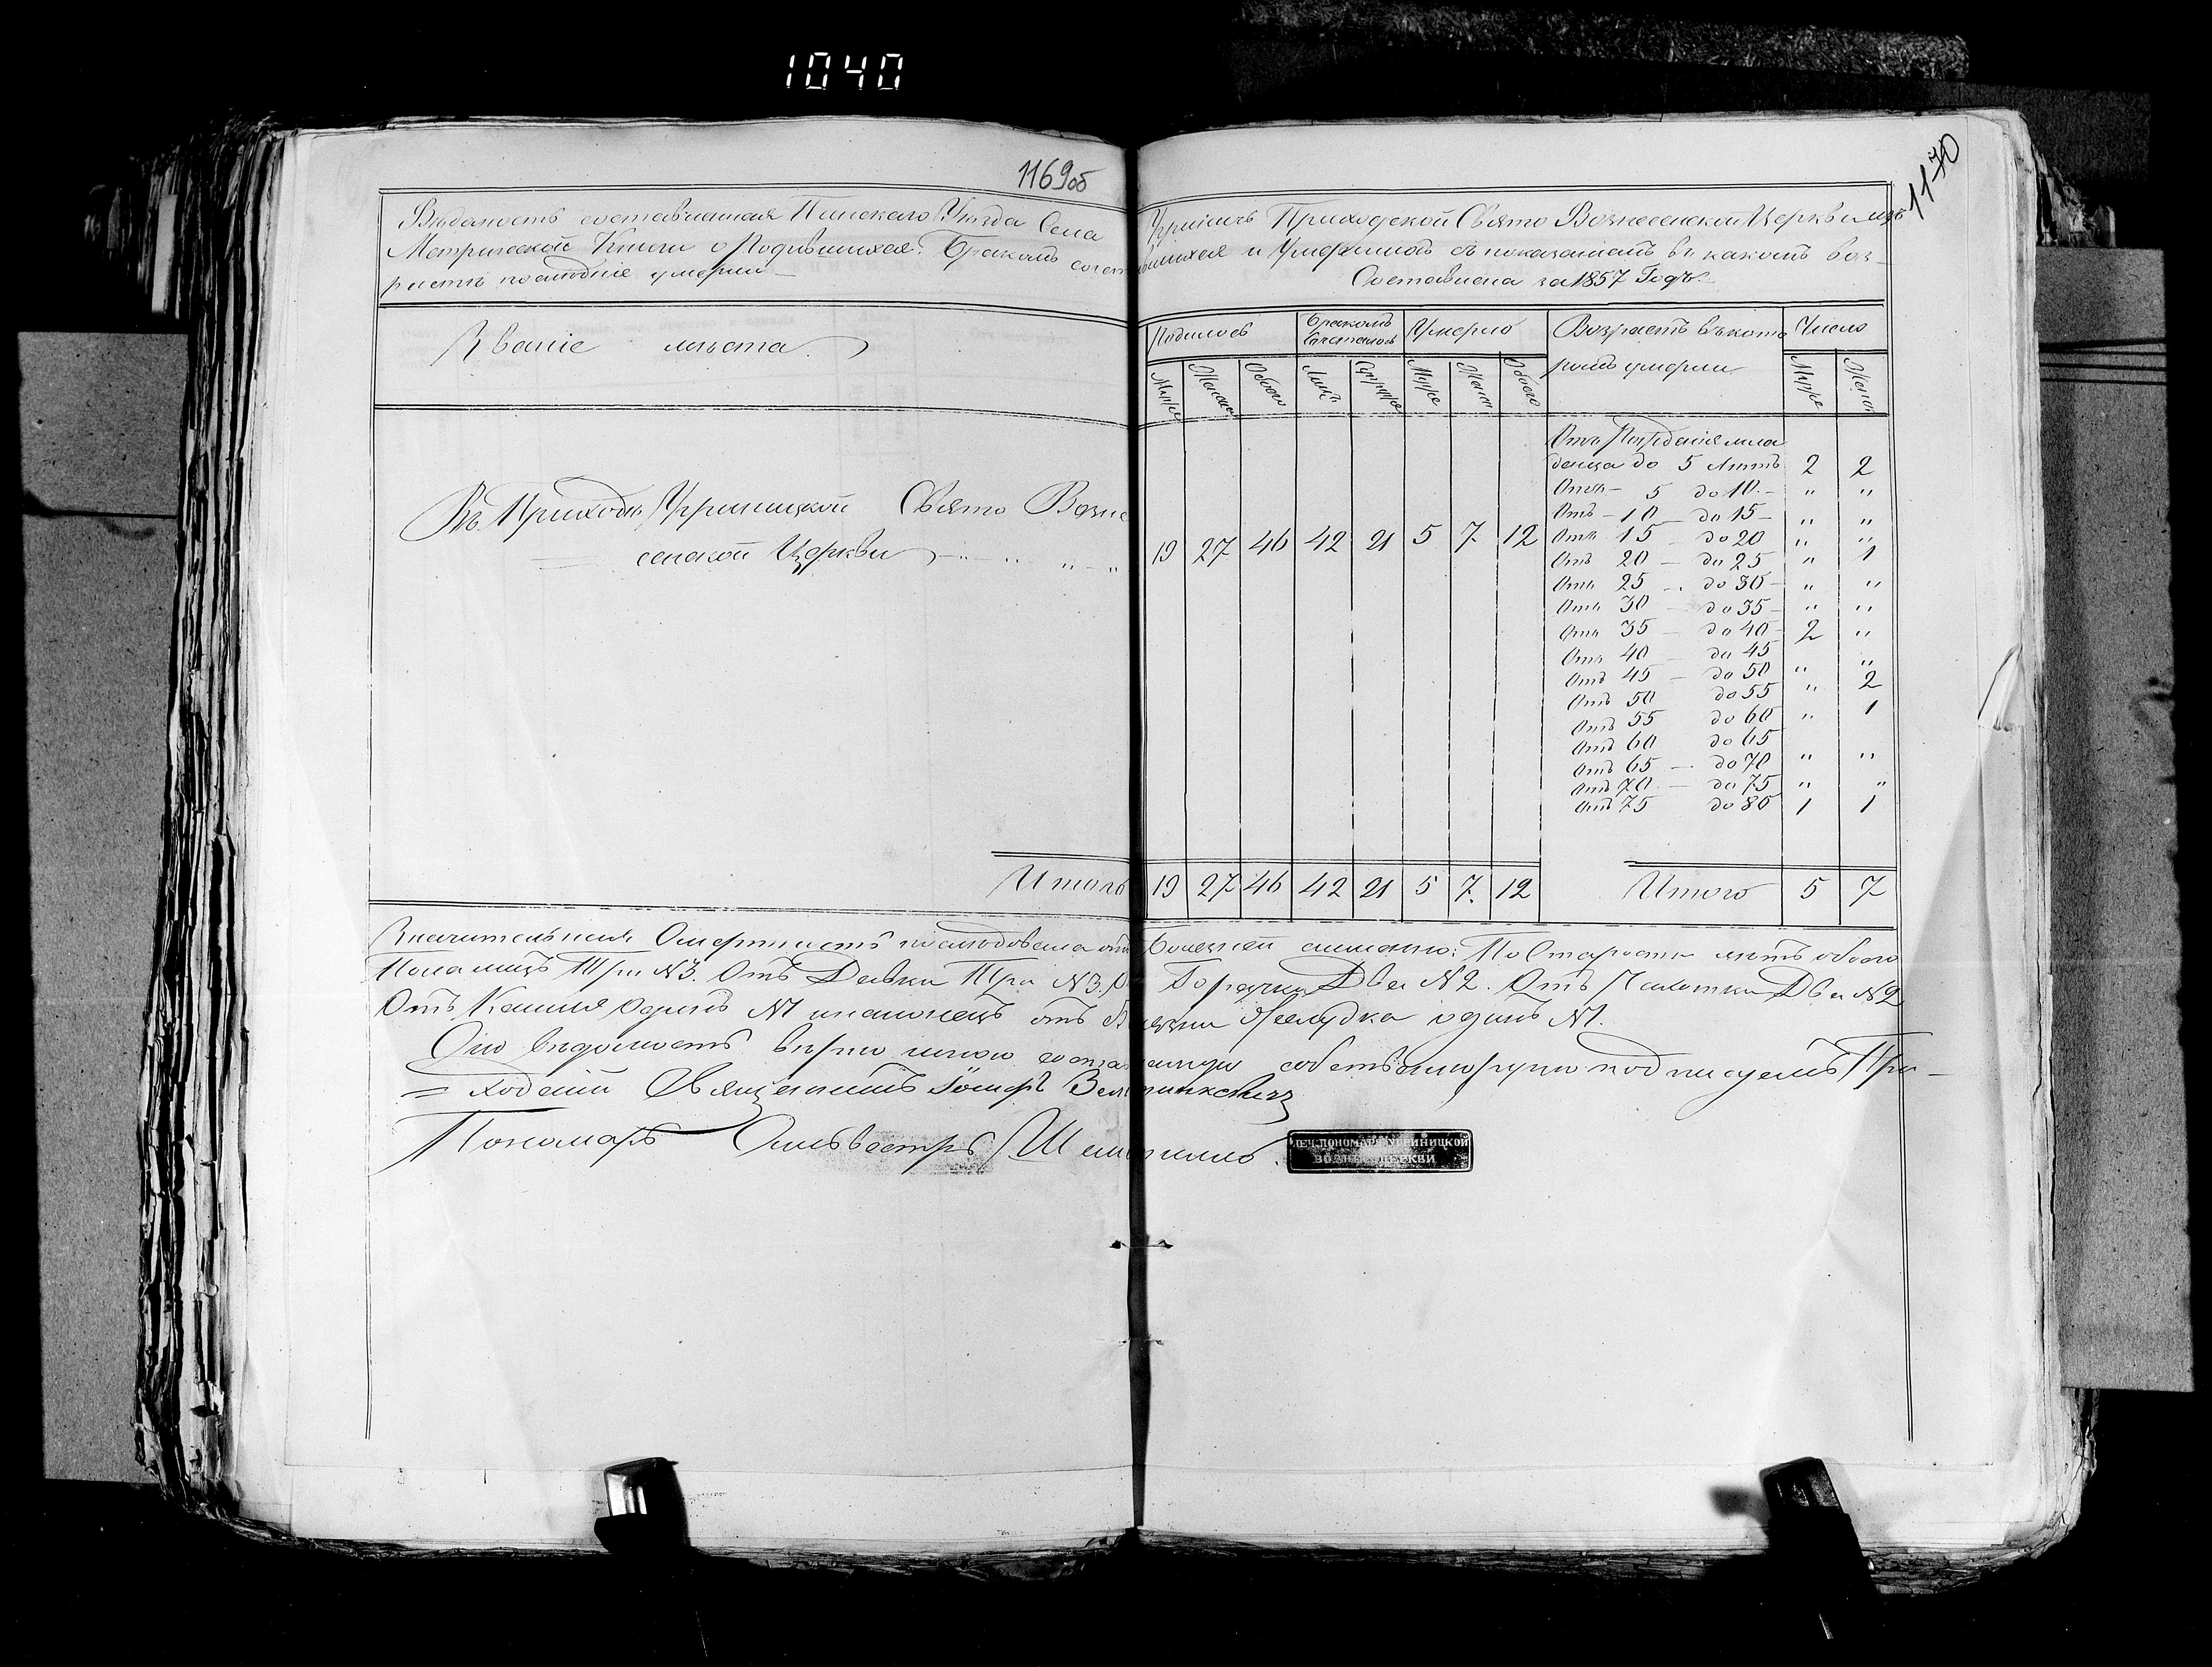 1040
1169об
1170
Ведомость составленная Пинскаго Уѣзда Села Угриничъ Приходской Свято Вознесенской Церкви изъ
Метрической Книги о Родившихся. Бракомъ сочетавшихся и Умершихъ съ показаніемъ въ какомъ воз-
растѣ последніе умерли — Составлена за 1857 Годъ.
Званіе мѣста
Родилось
Бракомъ Сочеталось
Умерло
Возрастъ въ кото
ромъ умерли
Число
Муже Женска Обоего Лицъ Супруж Муже Женск Обоего Муже Женск
Въ Приходѣ Угриницкой Свято Возне
= сенской Церкви
19 27 46 42 21 5 7 12
Отъ Рожденія мла
денца до 5 лѣтъ 2 2
Отъ — 5 до 10 — " "
Отъ — 10 — до 15 — " "
Отъ 15 до 20 " "
Отъ 20 — до 25 " 1
Отъ 25 — до 30 — " "
Отъ 30 — до 35 — " "
Отъ 35 — до 40 — 2 "
Отъ 40 до 45
Отъ 45 — до 50 " "
Отъ 50 до 55 " 2
Отъ 55 до 60 " 1
Отъ 60 до 65
Отъ 65 — до 70 " "
Отъ 70 — до 75 " "
Отъ 75 до 80 1 1
Итого 19 27 46 42 21 5 7 12 Итого 5 5 7
Значительная Смертность последовала отъ Болезней : По Старости лѣтъ обоего
Пола лицъ Три №3. Отъ Три №3. Отъ Горячки Два №2. Отъ Чахотки Два №2
Отъ Кашля одинъ №1 и наконецъ отъ желудка одинъ №1.
Сію ведомость верно мною собственноручно подписуемъ При-
= ходскій Священникъ
Пономарь Сильвестръ
ПЕЧ. ПОНОМАРЯ УГРИНИЦКОЙ
ВОЗНЕС. ЦЕРКВИ